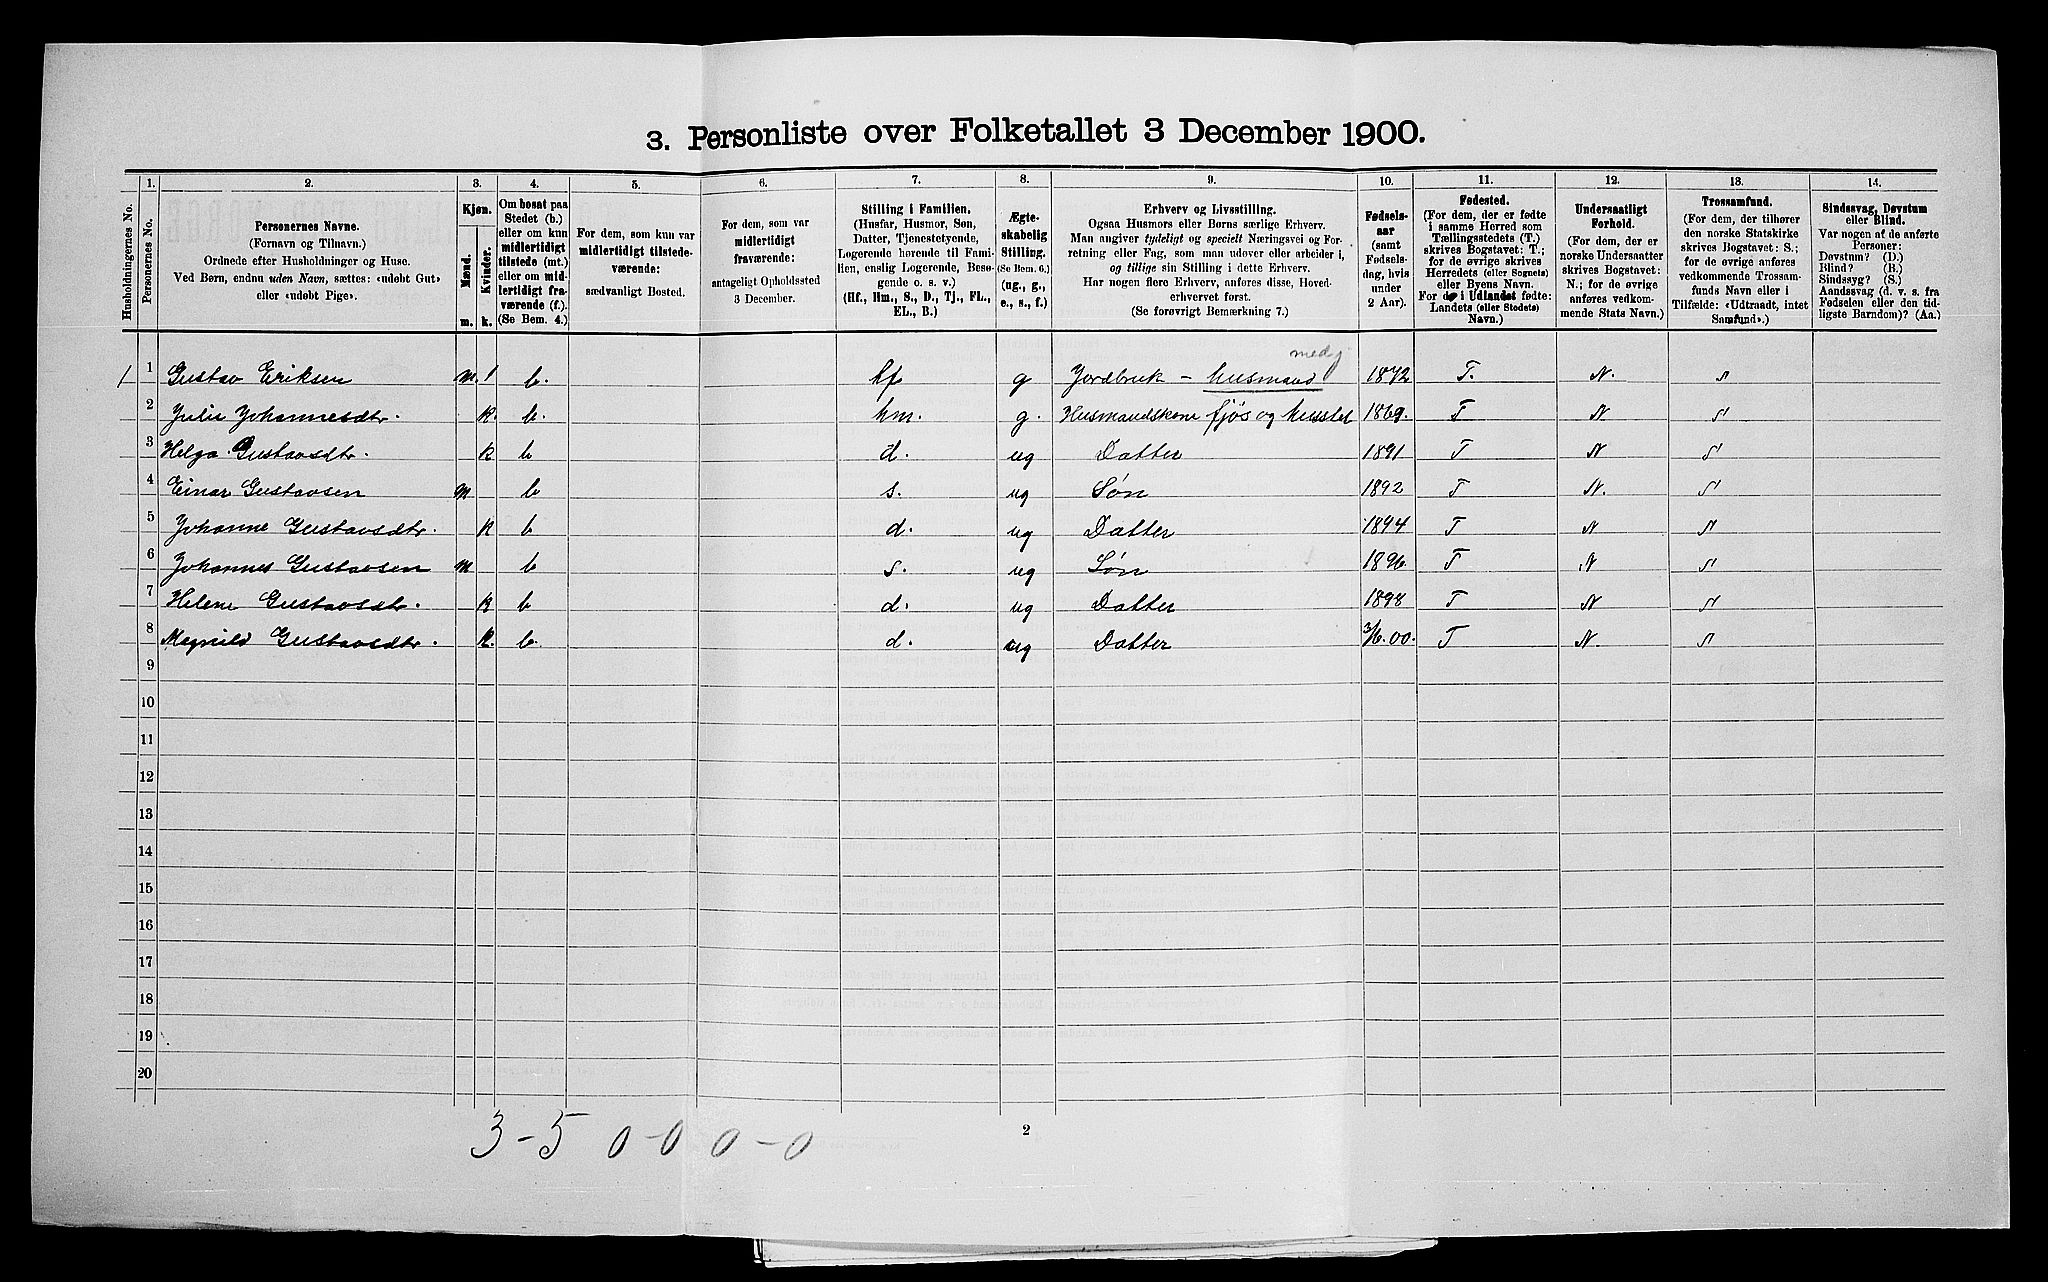 3. Personliste over Folketallet 3 December 1900.
Husholdningernes No.
1. Personernes No.
2. Personernes Navne. (Fornavn og Tilnavn.) Ordnede efter Husholdninger og Huse. Ved Børn, endnu uden Navn, sættes: «udøbt Gut» eller «udøbt Pige».
3. Kjøn. Mænd. m. Kvinder. k.
4. Om bosat paa Stedet (b.) eller om kun midlertidigt tilstede (mt.) eller om midlertidigt fraværende (f.). (Se Bem. 4.)
5. For dem, som kun var midlertidigt tilstedeværende: sædvanligt Bosted.
6. For dem, som var midlertidigt fraværende: antageligt Opholdssted 3 December.
7. Stilling i Familien. (Husfar, Husmor, Søn, Datter, Tjenestetyende, Logerende hørende til Familien, enslig Logerende, Besøgende o. s. v.) (Hf., Hm., S., D., Tj., FL., EL., B.)
8. Ægteskabelig Stilling. (Se Bem. 6.) (ug., g., e., s., f.)
9. Erhverv og Livsstilling. Ogsaa Husmors eller Børns særlige Erhverv. Man angiver tydeligt og specielt Næringsvei og Forretning eller Fag, som man udover eller arbeider i, og tillige sin Stilling i dette Erhverv. Har nogen flere Erhverv, anføres disse, Hovederhvervet først. (Se forøvrigt Bemærkning 7.)
10. Fødselsaar (samt Fødselsdag, hvis under 2 Aar).
11. Fødested. (For dem, der er fødte i samme Herred som Tællingsstedets (T.) skrives Bogstavet: T.; for de øvrige skrives Herredets (eller Sognets) eller Byens Navn. For de i Udlandet fødte: Landets (eller Stedets) Navn.)
12. Undersaatligt Forhold. (For dem, der er norske Undersaatter skrives Bogstavet: N.; for de øvrige anføres vedkommende Stats Navn.)
13. Trossamfund. (For dem, der tilhører den norske Statskirke skrives Bogstavet: S.; for de øvrige anføres vedkommende Trossamfunds Navn eller i Tilfælde: «Udtraadt, intet Samfund».)
14. Sindssvag, Døvstum eller Blind. Var nogen af de anførte Personer: Døvstum? (D.) Blind? (B.) Sindssyg? (S.) Aandssvag (d. v. s. fra Fødselen eller den tidligste Barndom)? (Aa.)
med j
1 1 Gustav Eriksen m. 1 b. hf g Jordbruk - husmand 1872 T. N. S
2 Julie Johannesdtr. k. b. hm. g. Husmandskone fjøs og husstel 1869. T N S
3 Helga Gustavsdtr. k b d. ug Datter 1891 T N S
4 Einar Gustavsen m b s. ug Søn 1892 T N. S
5 Johanne Gustavsdtr. k b d. ug Datter 1894 T N S
6 Johannes Gustavsen m b s. ug Søn 1896 T N S
7 Helene Gustavsdtr. k b d. ug Datter 1898 T N S
8 Magnild Gustavsdtr. k. b. d. ug Datter 3/6.00. T N. S
9
10
11
12
13
14
15
16
17
18
19
20
3-5 0-0 0-0
2